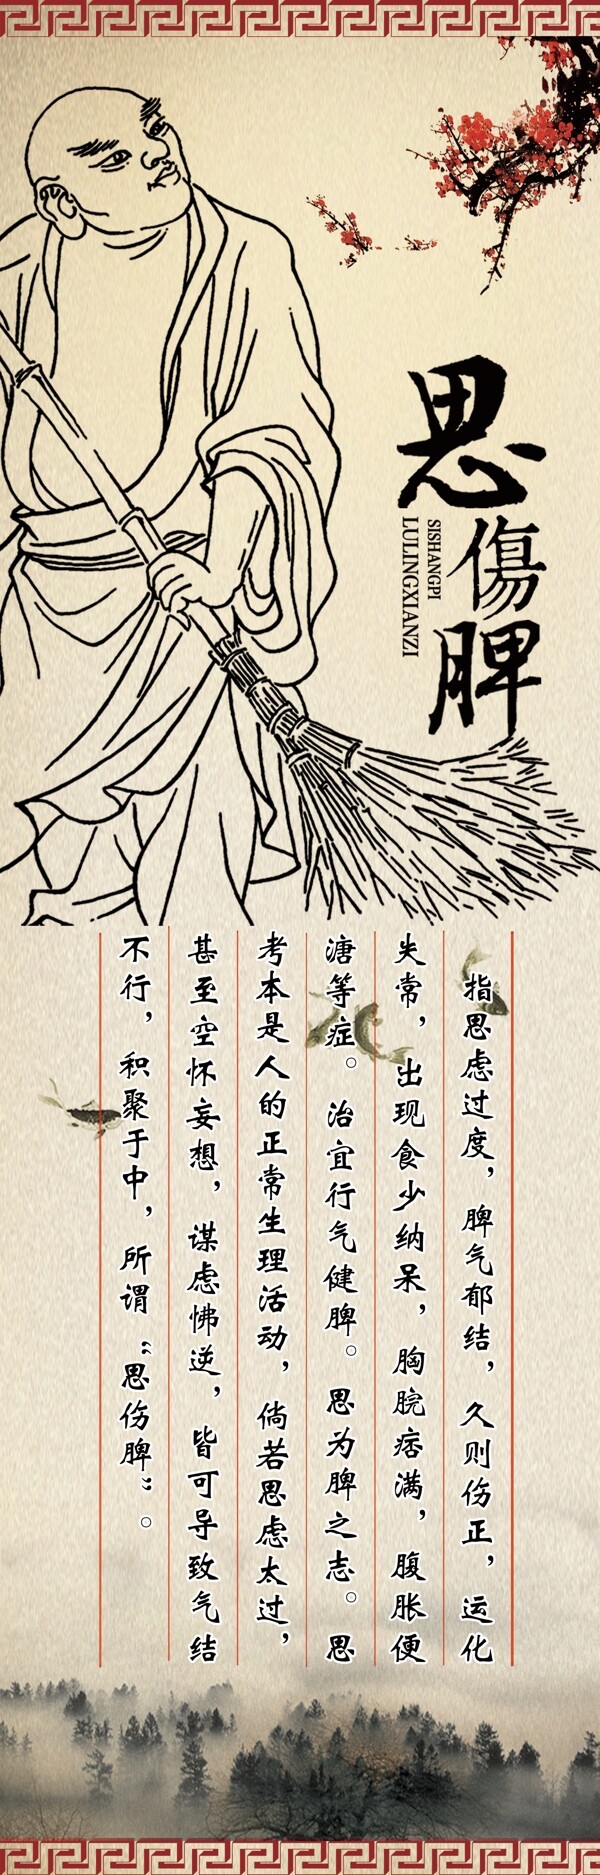 思傷脾
SISHANGPI
LULINGXIANZI
指思虑过度，脾气郁结，久则伤正，运化
失常，出现食少纳呆，胸脘痞满，腹胀便
溏等症。治宜行气健脾。思为脾之志。思
考本是人的正常生理活动，倘若思虑太过，
甚至空怀妄想，谋虑怫逆，皆可导致气结
不行，积聚于中，所谓“思伤脾”。